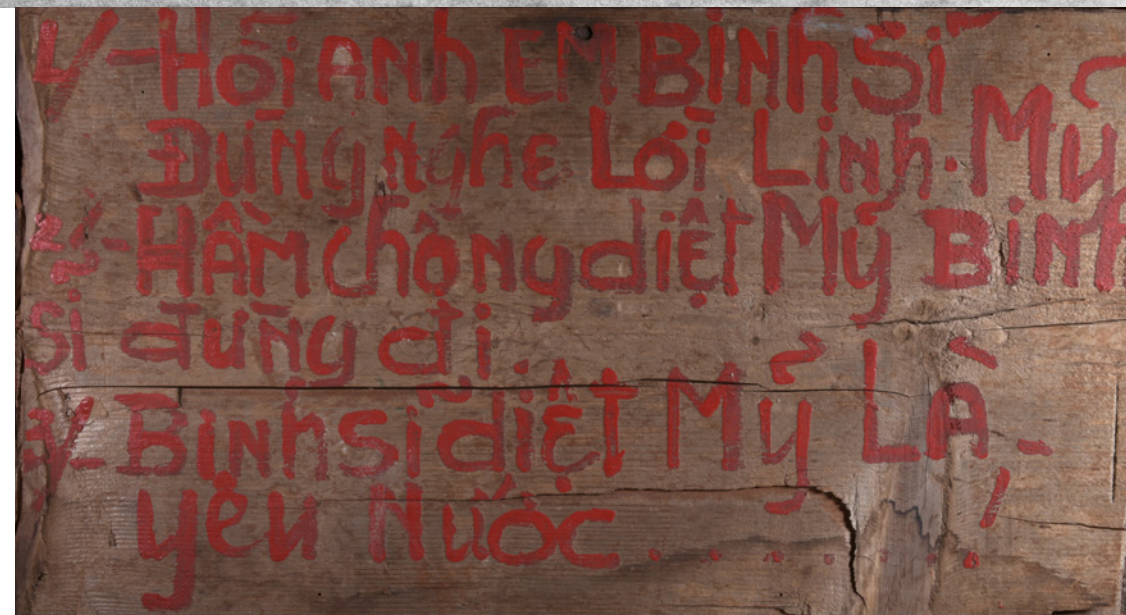 1/- Hỡi ANh EM BiNh Sĩ
Đừng Nghe Lời Linh. Mỹ
2/- HẦM Chông diệt Mỹ BiNh
Sĩ đừng đi
3/- BiNh sĩ diệt Mỹ LÀ
yêu Nước........